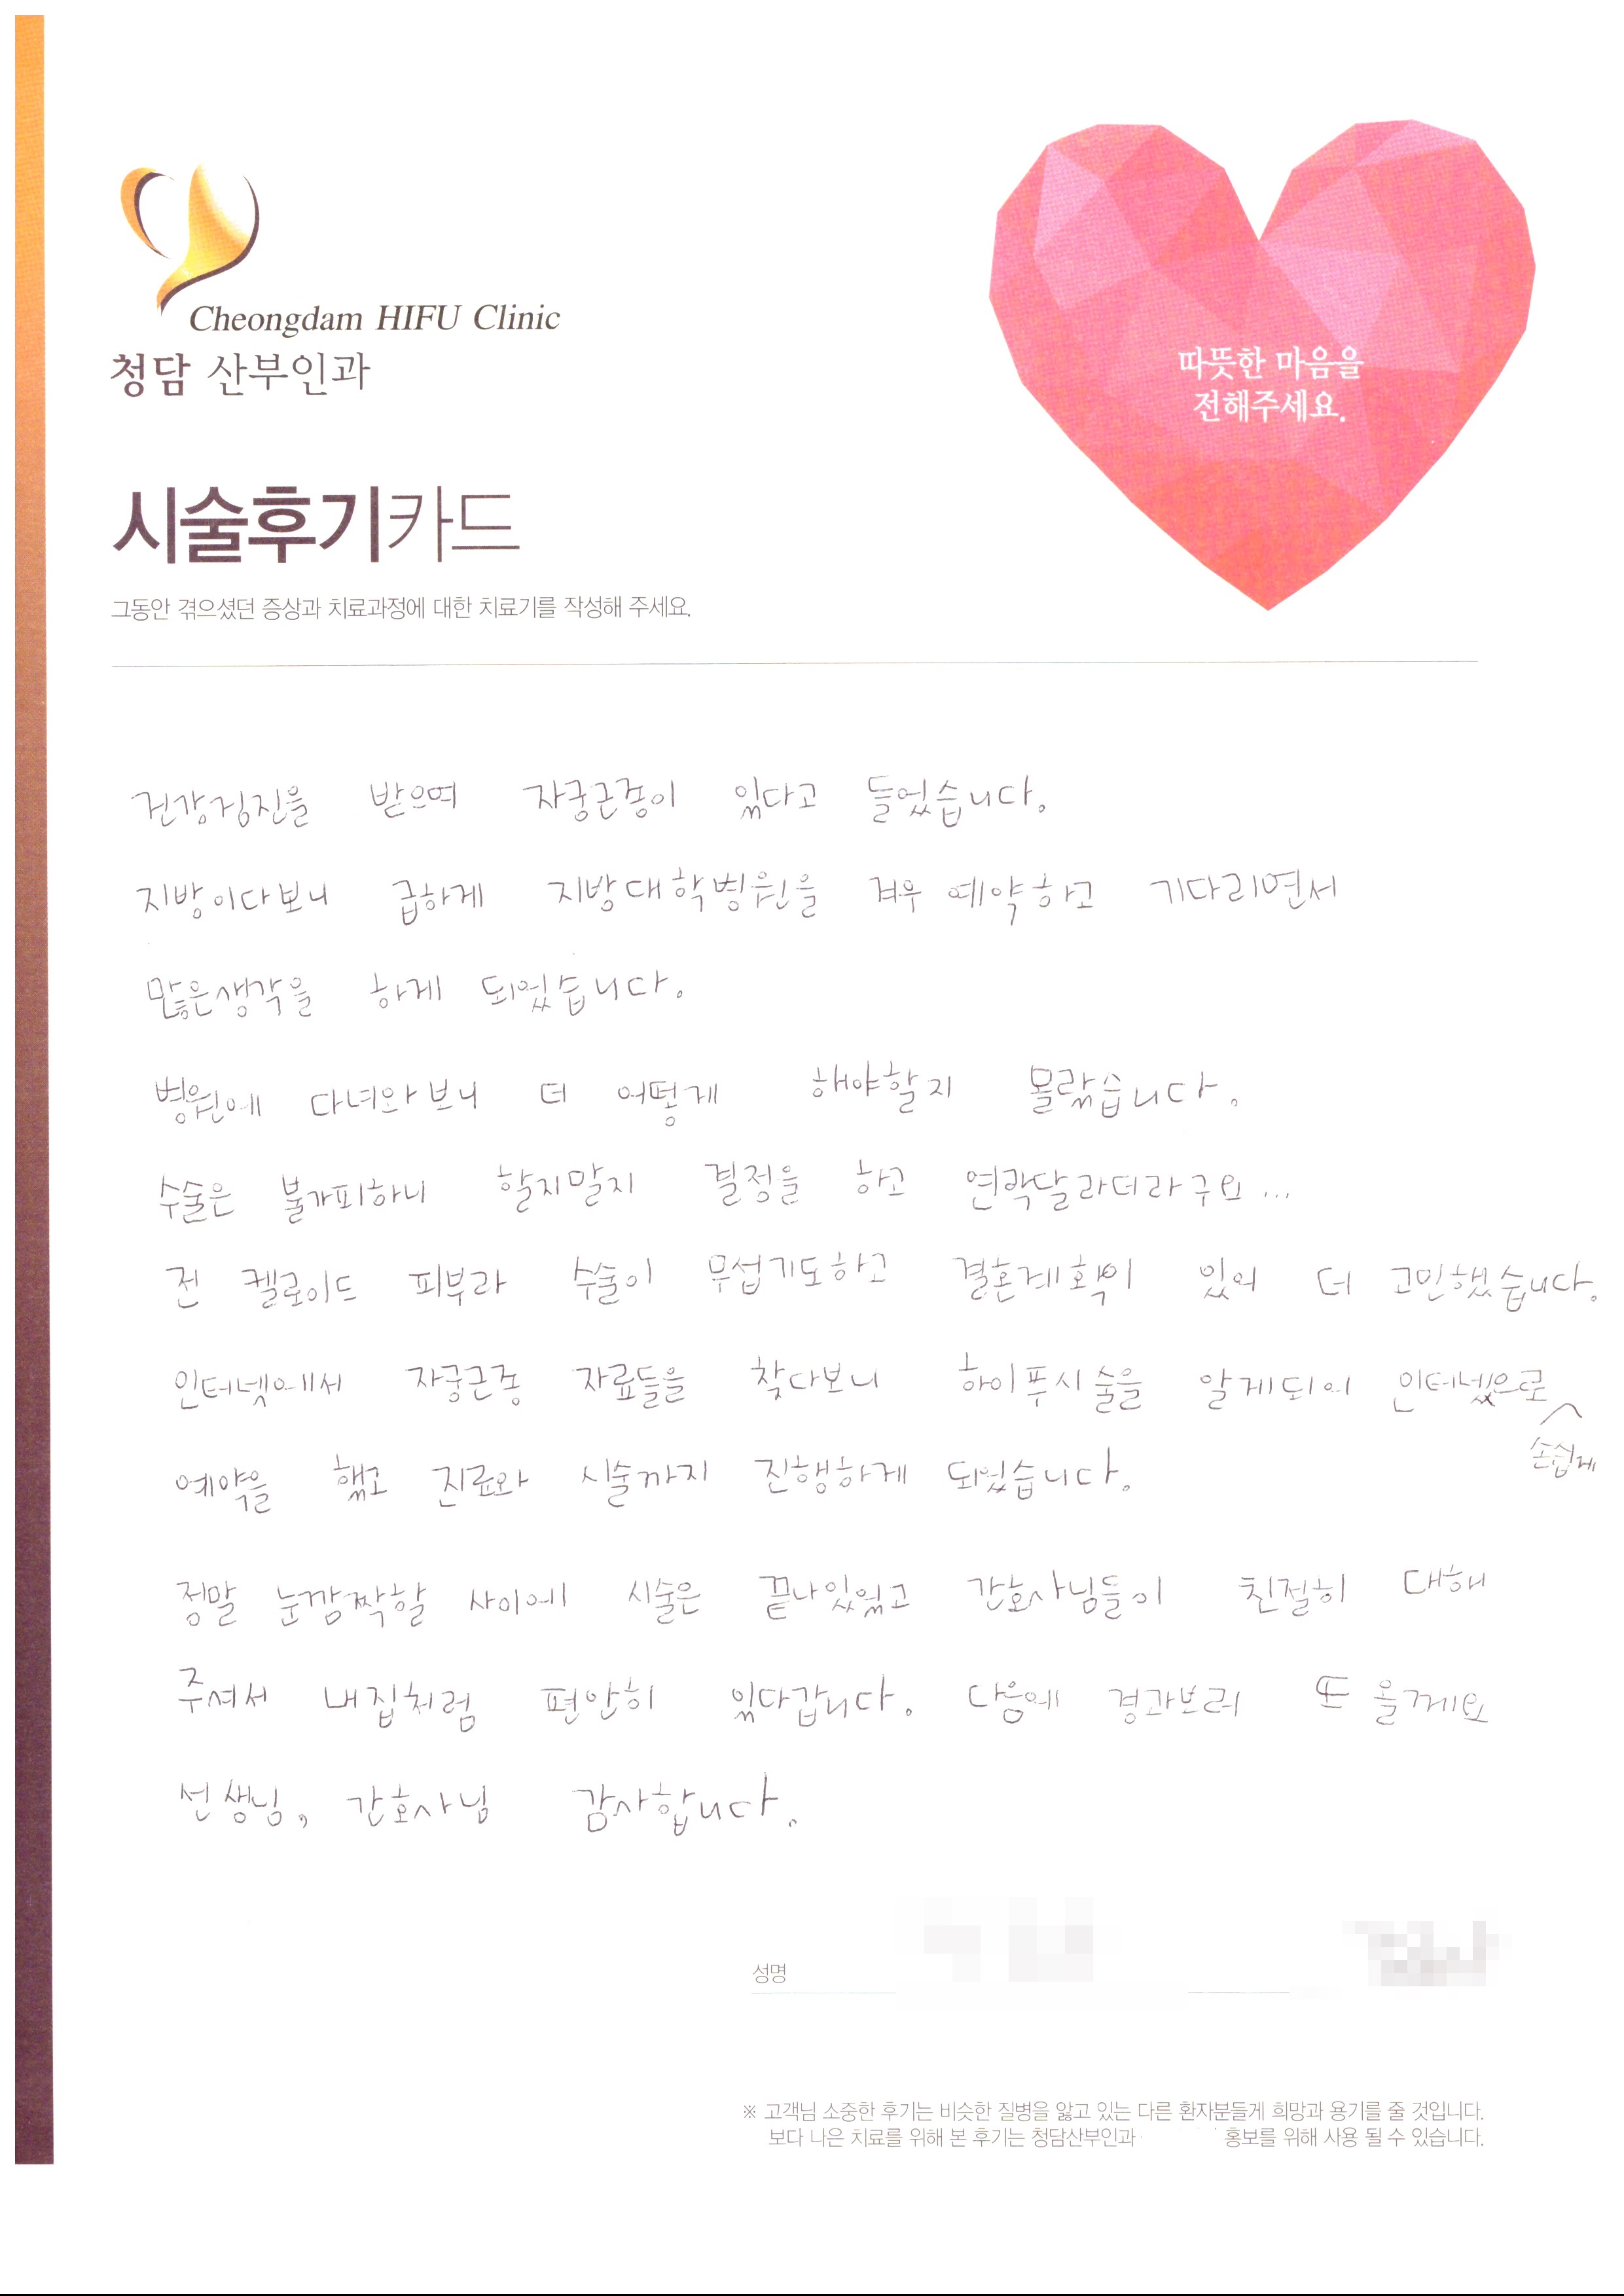 Cheongdam HIFU Clinic
청담 산부인과
따뜻한 마음을
전해주세요.
시술후기카드
그동안 겪으셨던 증상과 치료과정에 대한 치료기를 작성해 주세요.
건강검진을 받으며 자궁근종이 있다고 들었습니다.
지방이다보니 급하게 지방대학병원을 겨우 예약하고 기다리면서
많은생각을 하게 되었습니다.
병원에 다녀와보니 더 어떻게 해야할지 몰랐습니다.
수술은 불가피하니 할지말지 결정을 하고 연락달라더라구요...
전 켈로이드 피부라 수술이 무섭기도하고 결혼계획이 있어 더 고민했습니다.
인터넷에서 자궁근종 자료들을 찾다보니 하이푸시술을 알게되어 인터넷으로
손쉽게
예약을 했고 진료와 시술까지 진행하게 되었습니다.
정말 눈깜짝할 사이에 시술은 끝나있었고 간호사님들이 친절히 대해
주셔서 내집처럼 편안히 있다갑니다. 다음에 경과보러 또 올께요
선생님, 간호사님 감사합니다.
성명
※ 고객님 소중한 후기는 비슷한 질병을 앓고 있는 다른 환자분들게 희망과 용기를 줄 것입니다.
보다 나은 치료를 위해 본 후기는 청담산부인과 홍보를 위해 사용 될 수 있습니다.